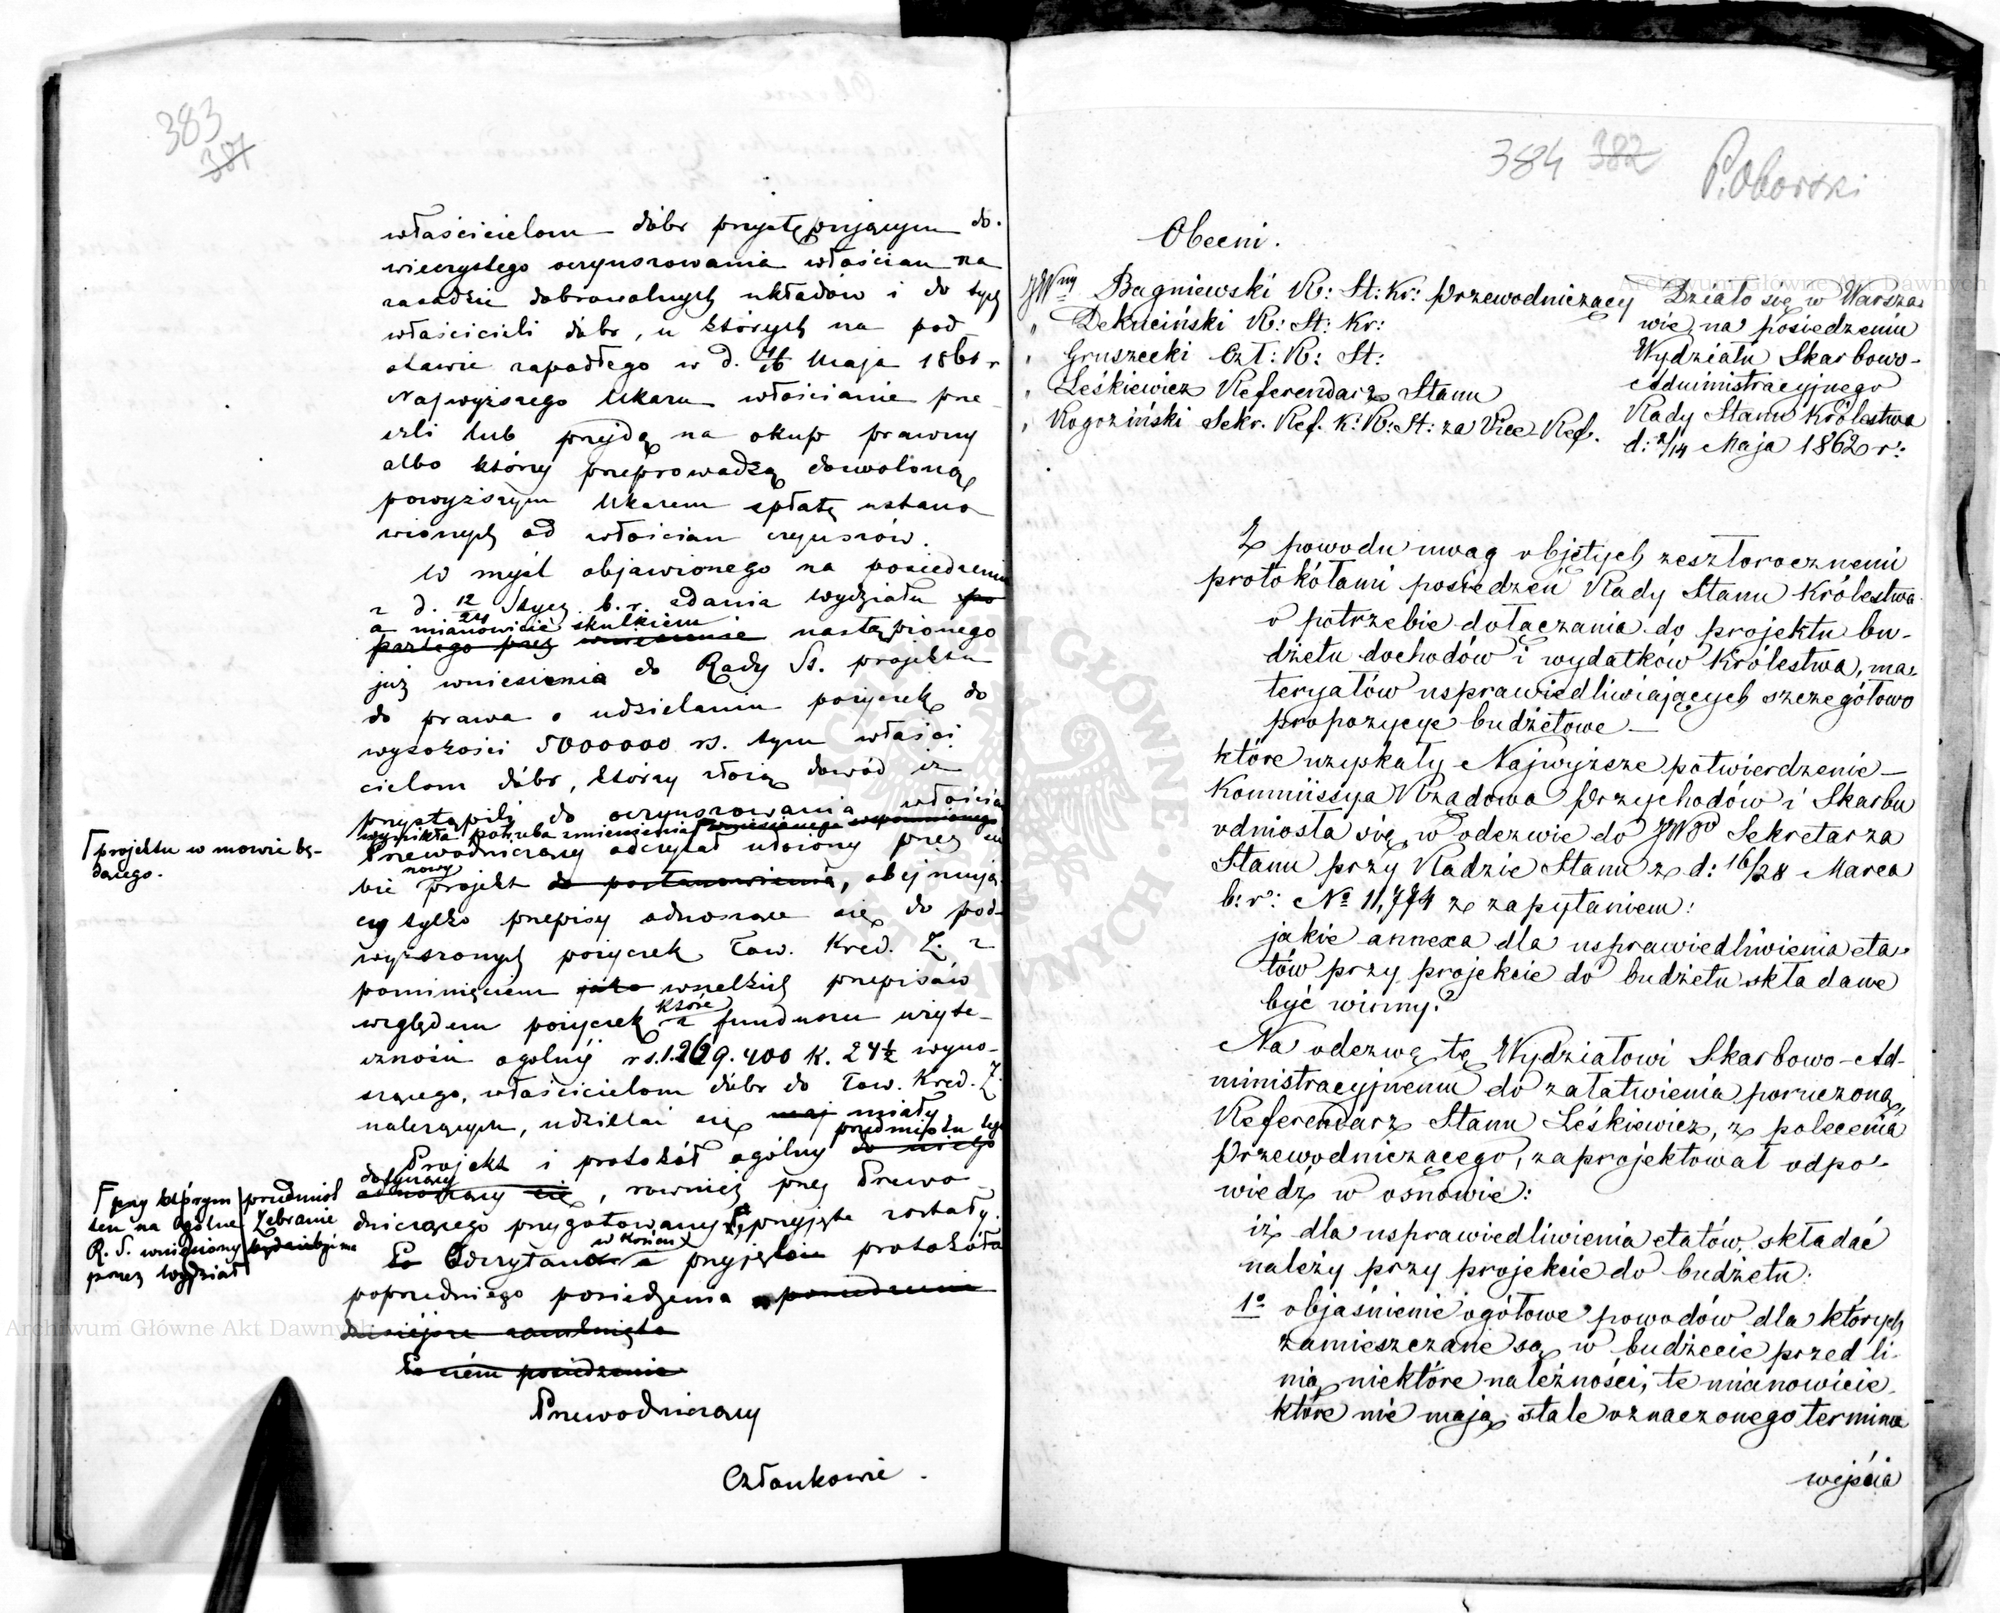 383
381
właścicielom dóbr przystępującym do
wieczystego oczynszowania włościan na
zasadzie dobrowolnych układów i do tych
właścicieli dóbr, u których na pod
stawie zapadłego w d. 4/16 Maja 1861 r
Najwyższego Ukazu włościanie prze
szli lub przejdą na okup prawny
albo którzy przeprowadzą dozwoloną
powyższym Ukazem spłatę ustano
wionych od włościan czynszów.
W myśl objawionego na posiedzeniu
z d. 12/24 Stycz. b.r. zdania wydziału po
a mianowicie skutkiem
partego przez wniesienie nastąpionego
już wniesienia do Rady St. projektu
do prawa o udzielaniu pożyczek do
wysokości 5000000 rs. tym właści
cielom dóbr, którzy złożą dowód iż
przystąpili do oczynszowania włościan
wynikła potrzeba zmienienia wniesionego wspomnionego
Γ projektu w mowie bę-
dącego.
Przewodniczący odczytał ułożony przez sie
bie nowy projekt do postanowienia, obejmują
cy tylko przepisy odnoszące się do pod-
wyższonych pożyczek Tow. Kred. Z. z
pominięciem jako wszelkich przepisów
względem pożyczek które z funduszu użyte-
czności ogólnej rs. 1.269.400 k. 24½ wyno-
szącego, właścicielom dóbr do Tow. Kred. Z.
należących, udzielać się maj miały
przedmiotu tego
Projekt i protokół ogólny do niego
dotyczący
odnoszący się, również przez Przewo
dniczącego przygotowany, przyjęte zostały.
Γ przy którym przedmiot
ten na Ogólne Zebranie
R. S. wniesiony będzie
przez wydział
w końcu
Po Odczytano a przyjęto protokół
poprzedniego posiedzenia a posiedzenie
dzisiejsze zamknięto
Po czém posiedzenie
Przewodniczący
Członkowie.
384 382
P. Oborski
Obecni.
JWny Bagniewski R: St: Kr: Przewodniczący
„ Dekuciński R: St: Kr:
„ Gruszecki Czł: R: St:
„ Leśkiewicz Referendarz Stanu
„ Rogoziński Sekr. Ref. K: R: St: za Vice-Ref.
Działo się w Warsza-
wie na posiedzeniu
Wydziału Skarbowo-
Administracyjnego
Rady Stanu Królestwa
d: 2/14 Maja 1862 r:
Z powodu uwag objętych zeszłorocznemi
protokółami posiedzeń Rady Stanu Królestwa
o potrzebie dołączania do projektu bu-
dżetu dochodów i wydatków Królestwa, ma-
teryałów usprawiedliwiających szczegółowo
propozycye budżetowe —
które uzyskały Najwyższe potwierdzenie —
Kommissya Rządowa Przychodów i Skarbu
odniosła się w odezwie do JWgo Sekretarza
Stanu przy Radzie Stanu z d: 16/28 Marca
b: r: No 11,774 z zapytaniem:
jakie annexa dla usprawiedliwienia eta-
tów przy projekcie do budżetu składane
być winny?
Na odezwę tę Wydziałowi Skarbowo-Ad-
ministracyjnemu do załatwienia poruczoną,
Referendarz Stanu Leśkiewicz, z polecenia
Przewodniczącego, zaprojektował odpo-
wiedź w osnowie:
iż dla usprawiedliwienia etatów, składać
należy przy projekcie do budżetu:
1o objaśnienie ogółowe powodów dla których
zamieszczane są w budżecie przed li-
nią niektóre należności, te mianowicie
które nie mają stale oznaczonego terminu
wejścia
Archiwum Główne Akt Dawnych
Archiwum Główne Akt Dawnych